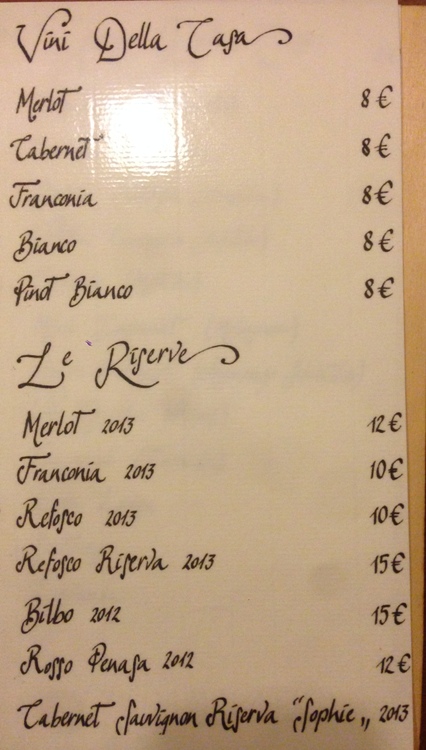 Vini Della Casa
Merlot 8 €
Cabernet 8 €
Franconia 8 €
Bianco 8 €
Pinot Bianco 8 €
Le Riserve
Merlot 2013 12 €
Franconia 2013 10 €
Refosco 2013 10 €
Refosco Riserva 2013 15 €
Bilbo 2012 15 €
Rosso Penasa 2012 12 €
Cabernet Sauvignon Riserva “Sophie„ 2013